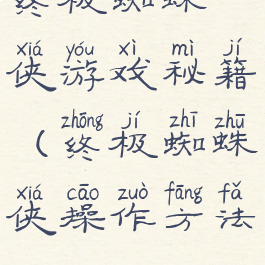 终极蜘蛛
xiá yóu xì mì jí
侠游戏秘籍
zhōng jí zhī zhū
(终极蜘蛛
xiá cāo zuò fāng fǎ
侠操作方法